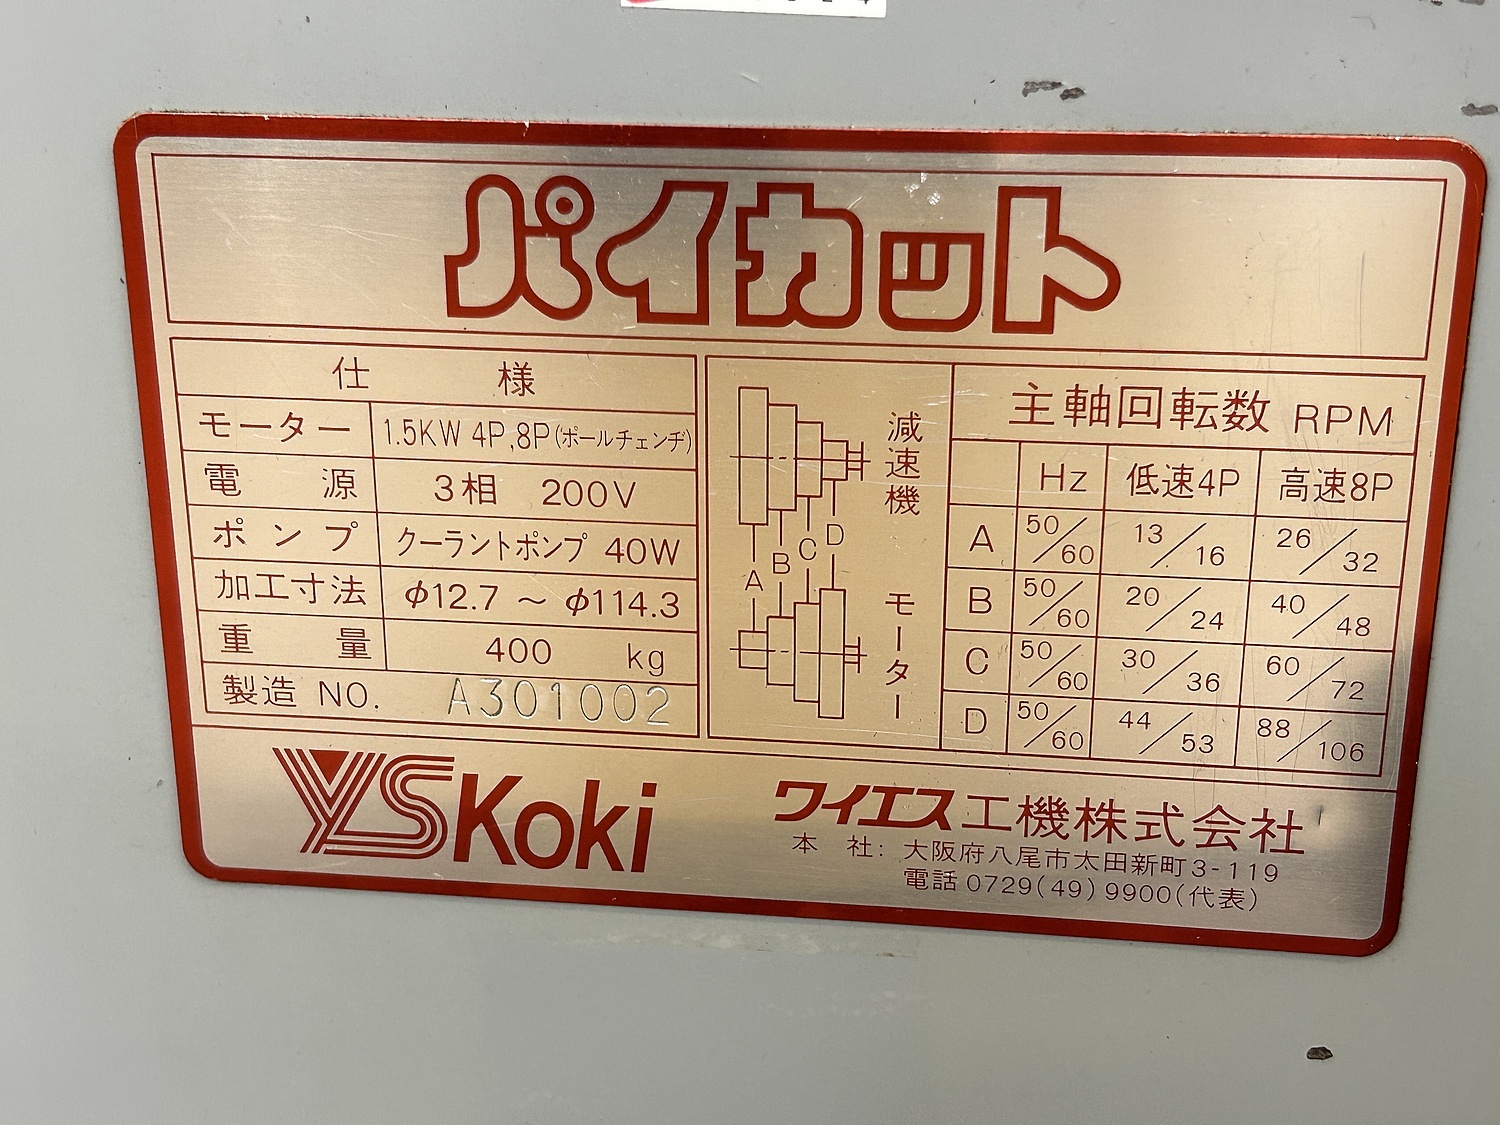 パイカット
仕様
モーター 1.5KW 4P,8P(ポールチェンヂ)
電源 3相 200V
ポンプ クーラントポンプ 40W
加工寸法 φ12.7 ～ φ114.3
重量 400 kg
製造 NO. A301002
減速機
A B C D
モーター
主軸回転数 RPM
Hz 低速4P 高速8P
A 50/60 13/16 26/32
B 50/60 20/24 40/48
C 50/60 30/36 60/72
D 50/60 44/53 88/106
YS Koki
ワイエス工機株式会社
本社: 大阪府八尾市太田新町3-119
電話 0729(49)9900(代表)